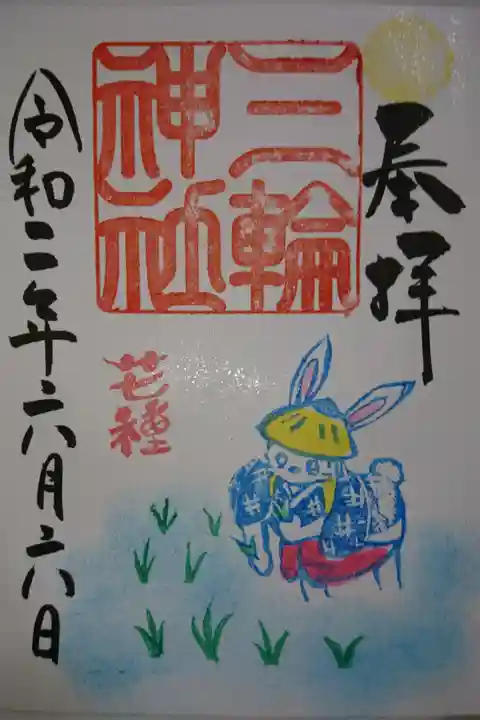 奉拝
三輪
神社
芒種
令和二年六月六日